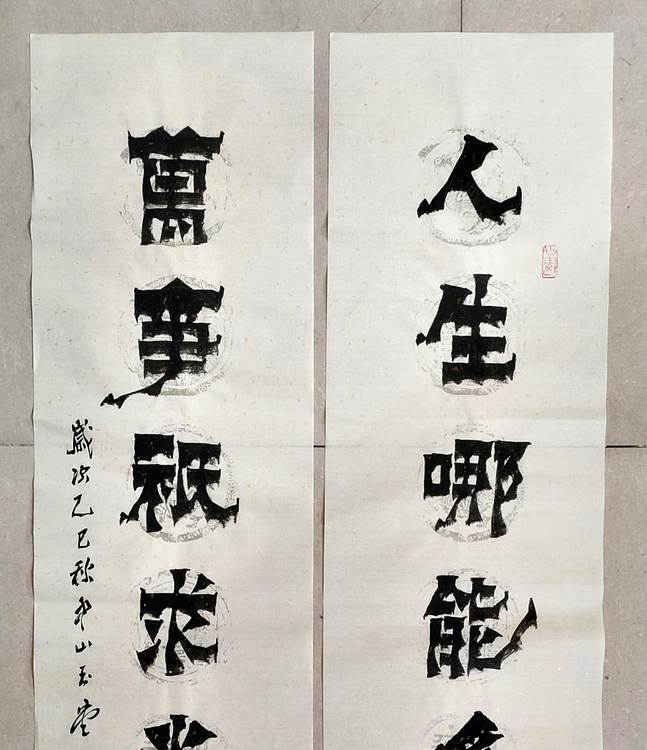 人生哪能
萬事祇求
歲次乙巳秋山玉